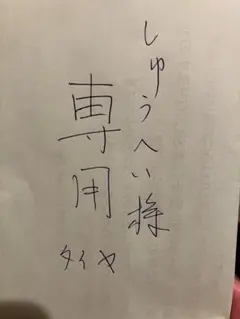 しゅうへい様
専用
タイヤ